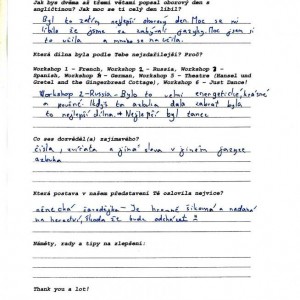 Jak bys dvěma až třemi větami popsal oborový den s
angličtinou? Jak moc se ti celý den líbil?
Byl to zatím nejlepší oborový den. Moc se mi
líbilo že jsme se zabývali jazyky. Moc jsem si
to užila a mnoho se naučila.
Která dílna byla podle Tebe nejzdařilejší? Proč?
Workshop 1 - French, Workshop 2 - Russia, Workshop 3 -
Spanish, Workshop 4 - German, Workshop 5 - Theatre (Hansel und
Gretel and the Gingerbread Cottage), Workshop 6 - Just Dance!
Workshop 2 - Russia - Bylo to velmi energetické, krásné
a poučné. I když to azbuka dala zabrat byla
to nejlepší dílna. + Nejlepší byl tanec
Co ses dozvěděl(a) zajímavého?
čísla, zvířata a jiná slova v jiném jazyce
azbuka
Která postava v našem představení Tě oslovila nejvíce?
německá čarodějka - Je hrozně šikovná a nadaná
na herectví, škoda že bude odcházet
Náměty, rady a tipy na zlepšení:
Thank you a lot!